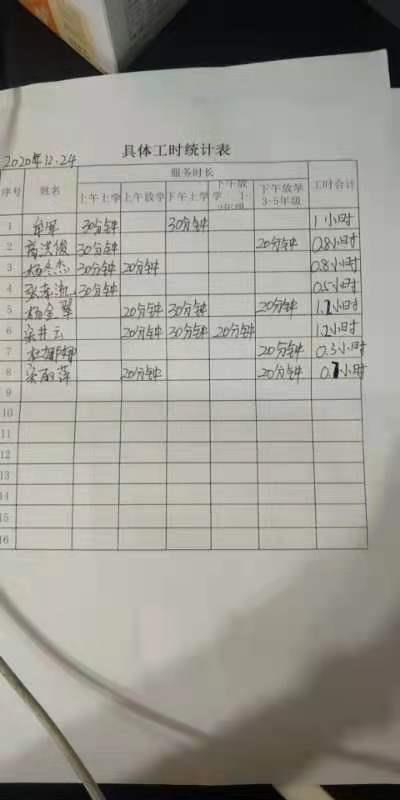 具体工时统计表
2020年12.24
序号 姓名 服务时长 工时合计
上午上学 上午放学 下午上学 下午放学 1-2年级 下午放学 3-5年级
1 30分钟 30分钟 1小时
2 30分钟 20分钟 0.8小时
3 杨冬杰 30分钟 20分钟 0.8小时
4 30分钟 0.5小时
5 杨金翠 20分钟 30分钟 20分钟 1.2小时
6 梁井云 20分钟 30分钟 20分钟 1.2小时
7 20分钟 0.3小时
8 梁丽萍 20分钟 20分钟 0.7小时
9
10
11
12
13
14
15
16